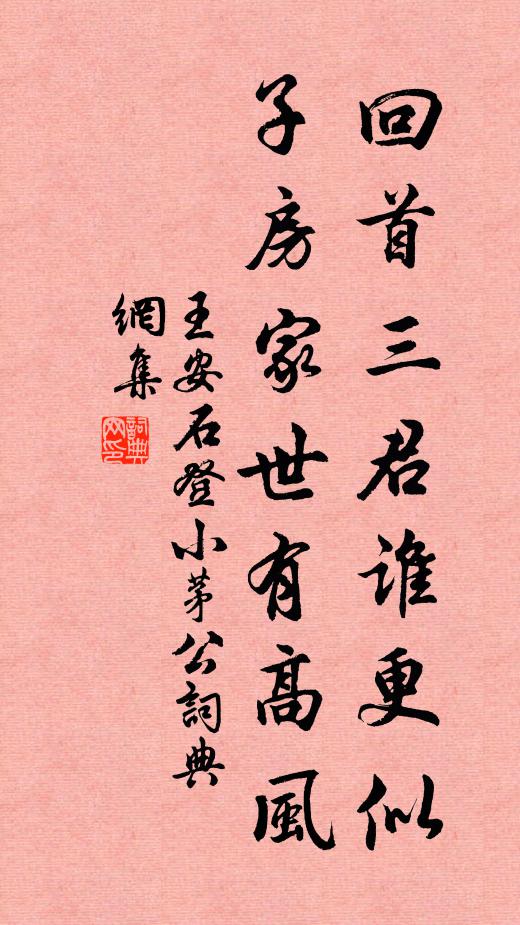 回首三君谁更似
子房家世有高風
王安石登小茅公詞典
網集
詞典
网印